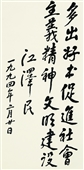 多出好书促进社會
主義精神文明建设
江泽民
一九九四年二月廿日